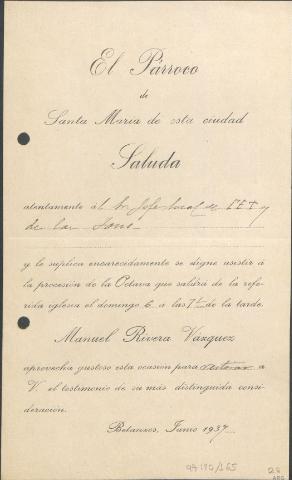 El Párroco
de
Santa María de esta ciudad
Saluda
atentamente á l Sr Jefe local de FET y
de las Jons
y le suplica encarecidamente se digne asistir á
la procesión de la Octava que saldrá de la refe-
rida iglesia el domingo 6 á las 7 1/2 de la tarde.
Manuel Rivera Vázquez
aprovecha gustoso esta ocasión para reiterar a
V. el testimonio de su más distinguida consi-
deración.
Betanzos, Junio 1937